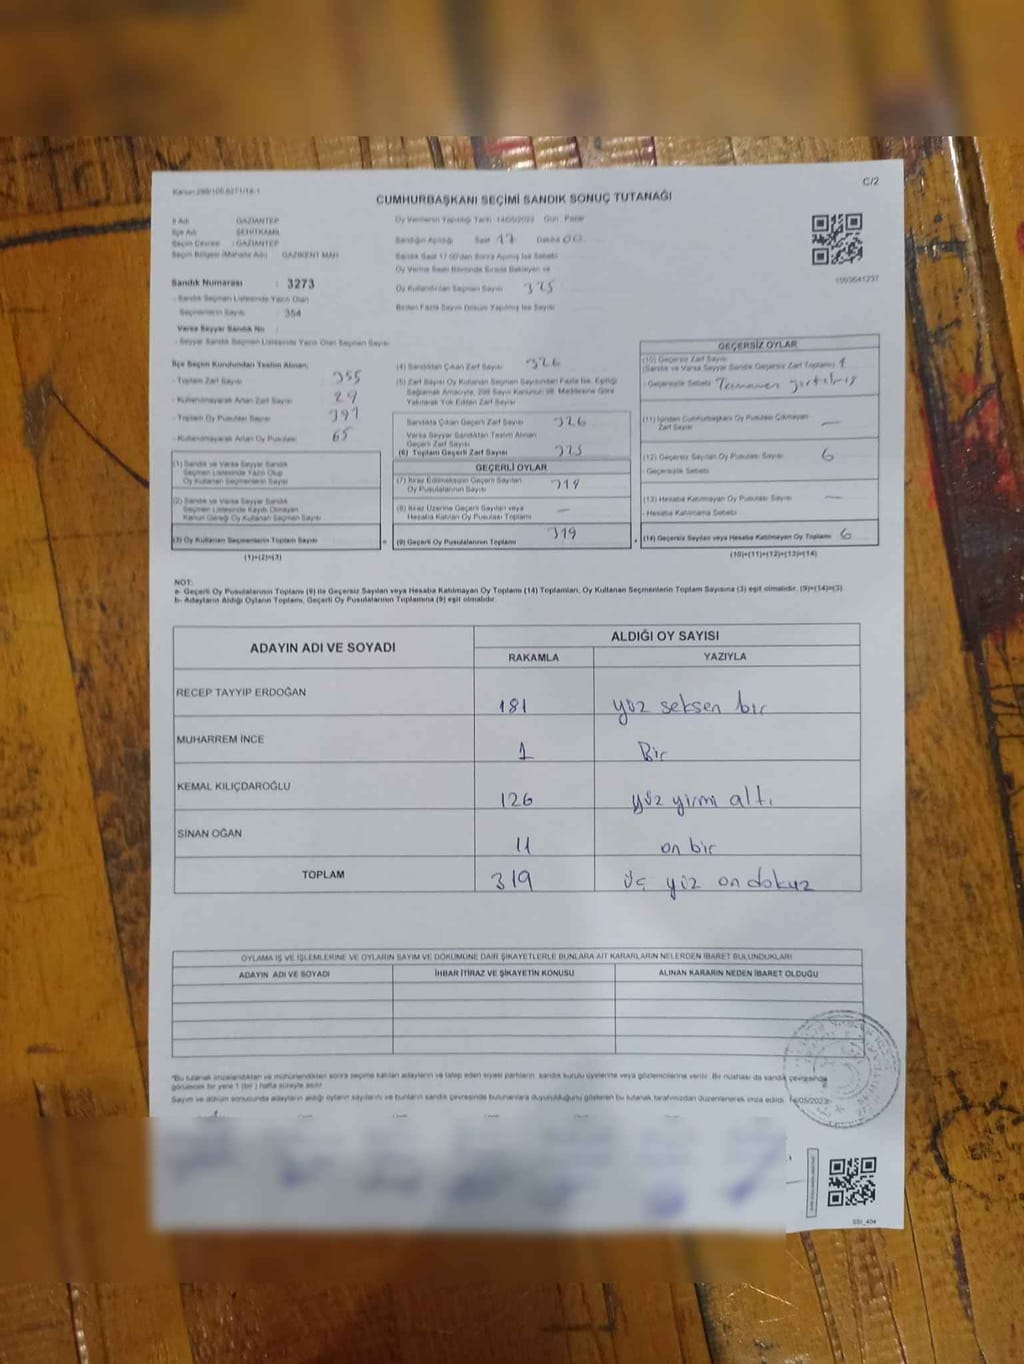 Kanun 298/105,6271/18-1
C/2
CUMHURBAŞKANI SEÇİMİ SANDIK SONUÇ TUTANAĞI
İl Adı : GAZİANTEP
İlçe Adı : ŞEHİTKAMİL
Seçim Çevresi : GAZİANTEP
Seçim Bölgesi (Mahalle Adı) : GAZİKENT MAH
Oy Vermenin Yapıldığı Tarih: 14/05/2023 Gün : Pazar
Sandığın Açıldığı Saat 17 Dakika 00
Sandık Saat 17:00'den Sonra Açılmış İse Sebebi
Oy Verme Saati Bitiminde Sırada Bekleyen ve
Oy Kullandıran Seçmen Sayısı 325
Birden Fazla Sayım Döküm Yapılmış İse Sayısı
Sandık Numarası : 3273
- Sandık Seçmen Listesinde Yazılı Olan
Seçmenlerin Sayısı 354
Varsa Seyyar Sandık No
- Seyyar Sandık Seçmen Listesinde Yazılı Olan Seçmen Sayısı
İlçe Seçim Kurulundan Teslim Alınan;
- Toplam Zarf Sayısı 355
- Kullanılmayarak Artan Zarf Sayısı 29
- Toplam Oy Pusulası Sayısı 391
- Kullanılmayarak Artan Oy Pusulası 65
(1) Sandık ve Varsa Seyyar Sandık
Seçmen Listesinde Yazılı Olup
Oy Kullanan Seçmenlerin Sayısı
(2) Sandık ve Varsa Seyyar Sandık
Seçmen Listesinde Kayıtlı Olmayan
Kanun Gereği Oy Kullanan Seçmen Sayısı
(3) Oy Kullanan Seçmenlerin Toplam Sayısı
(1)+(2)=(3)
(4) Sandıktan Çıkan Zarf Sayısı 326
(5) Zarf Sayısı Oy Kullanan Seçmen Sayısından Fazla İse, Eşitliği
Sağlamak Amacıyla, 298 Sayılı Kanunun 98. Maddesine Göre
Yakılarak Yok Edilen Zarf Sayısı
Sandıkta Çıkan Geçerli Zarf Sayısı 326
Varsa Seyyar Sandıktan Teslim Alınan
Geçerli Zarf Sayısı
(6) Toplam Geçerli Zarf Sayısı 325
GEÇERLİ OYLAR
(7) İtiraz Edilmeksizin Geçerli Sayılan
Oy Pusulalarının Sayısı 319
(8) İtiraz Üzerine Geçerli Sayılan veya
Hesaba Katılan Oy Pusulası Toplamı —
(9) Geçerli Oy Pusulalarının Toplamı 319
GEÇERSİZ OYLAR
(10) Geçersiz Zarf Sayısı
(Sandık ve Varsa Seyyar Sandık Geçersiz Zarf Toplamı) 1
- Geçersizlik Sebebi Tamamen yırtılmış
(11) İçinden Cumhurbaşkanı Oy Pusulası Çıkmayan
Zarf Sayısı —
(12) Geçersiz Sayılan Oy Pusulası Sayısı 6
- Geçersizlik Sebebi
(13) Hesaba Katılmayan Oy Pusulası Sayısı —
- Hesaba Katılmama Sebebi
(14) Geçersiz Sayılan veya Hesaba Katılmayan Oy Toplamı 6
(10)+(11)+(12)+(13)=(14)
NOT:
a- Geçerli Oy Pusulalarının Toplamı (9) ile Geçersiz Sayılan veya Hesaba Katılmayan Oy Toplamı (14) Toplamları, Oy Kullanan Seçmenlerin Toplam Sayısına (3) eşit olmalıdır. (9)+(14)=(3)
b- Adayların Aldığı Oyların Toplamı, Geçerli Oy Pusulalarının Toplamına (9) eşit olmalıdır.
ADAYIN ADI VE SOYADI
ALDIĞI OY SAYISI
RAKAMLA YAZIYLA
RECEP TAYYIP ERDOĞAN 181 yüz seksen bir
MUHARREM İNCE 1 Bir
KEMAL KILIÇDAROĞLU 126 yüz yirmi altı
SİNAN OĞAN 11 on bir
TOPLAM 319 üç yüz on dokuz
OYLAMA İŞ VE İŞLEMLERİNE VE OYLARIN SAYIM VE DÖKÜMÜNE DAİR ŞİKAYETLERLE BUNLARA AİT KARARLARIN NELERDEN İBARET BULUNDUKLARI
ADAYIN ADI VE SOYADI İHBAR İTİRAZ VE ŞİKAYETİN KONUSU ALINAN KARARIN NEDEN İBARET OLDUĞU
*Bu tutanak imzalandıktan ve mühürlendikten sonra seçime katılan adayların ve talep eden siyasi partilerin, sandık kurulu üyelerine veya gözlemcilerine verilir. Bir nüshası da sandık çevresinde
görülecek bir yere 1 (bir) hafta süreyle asılır.
Sayım ve döküm sonucunda adayların aldığı oyların sayılarını ve bunların sandık çevresinde bulunanlara duyurulduğunu gösteren bu tutanak tarafımızdan düzenlenerek imza edildi. 14/05/2023